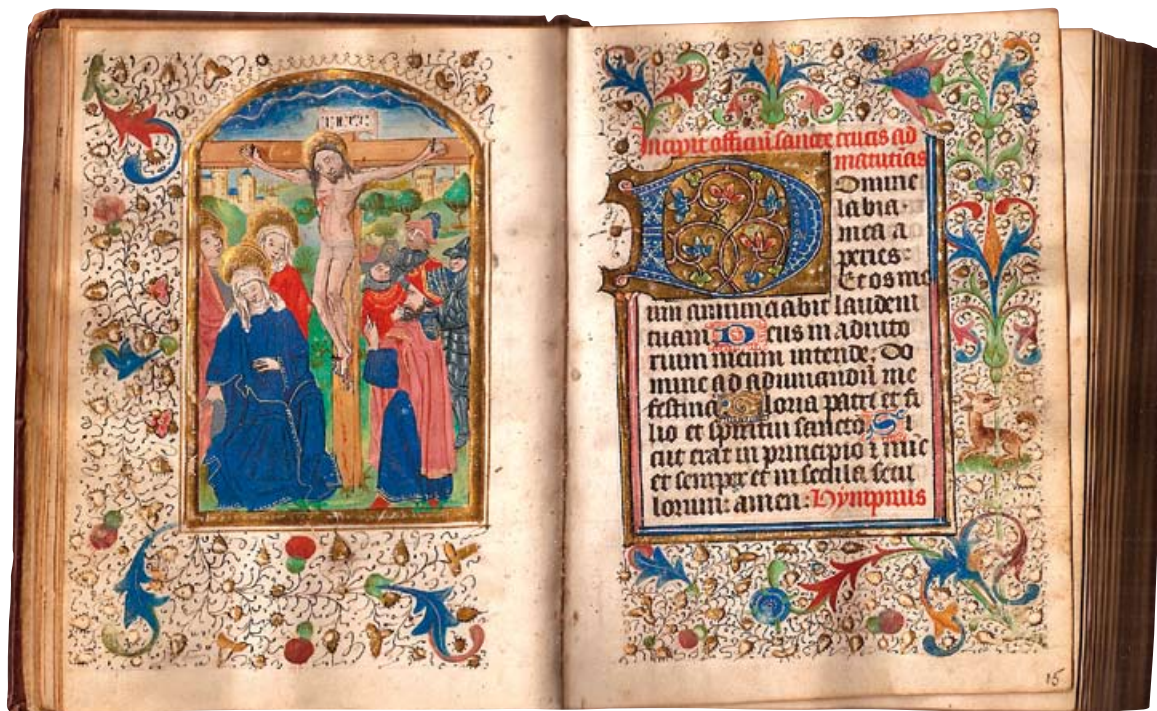 Incipit officiū sancte crucis ad
matutinas
Domine
labia
mea a
peries
Et os me
um annunciabit laudem
tuam Deus in adiuto
rium meum intende; Do
mine ad adiuuandū me
festina Gloria patri et fi
lio et spiritui sancto Si
cut erat in principio ⁊ nūc
et semper et in secula secu
lorum: amen: Hympnus
15